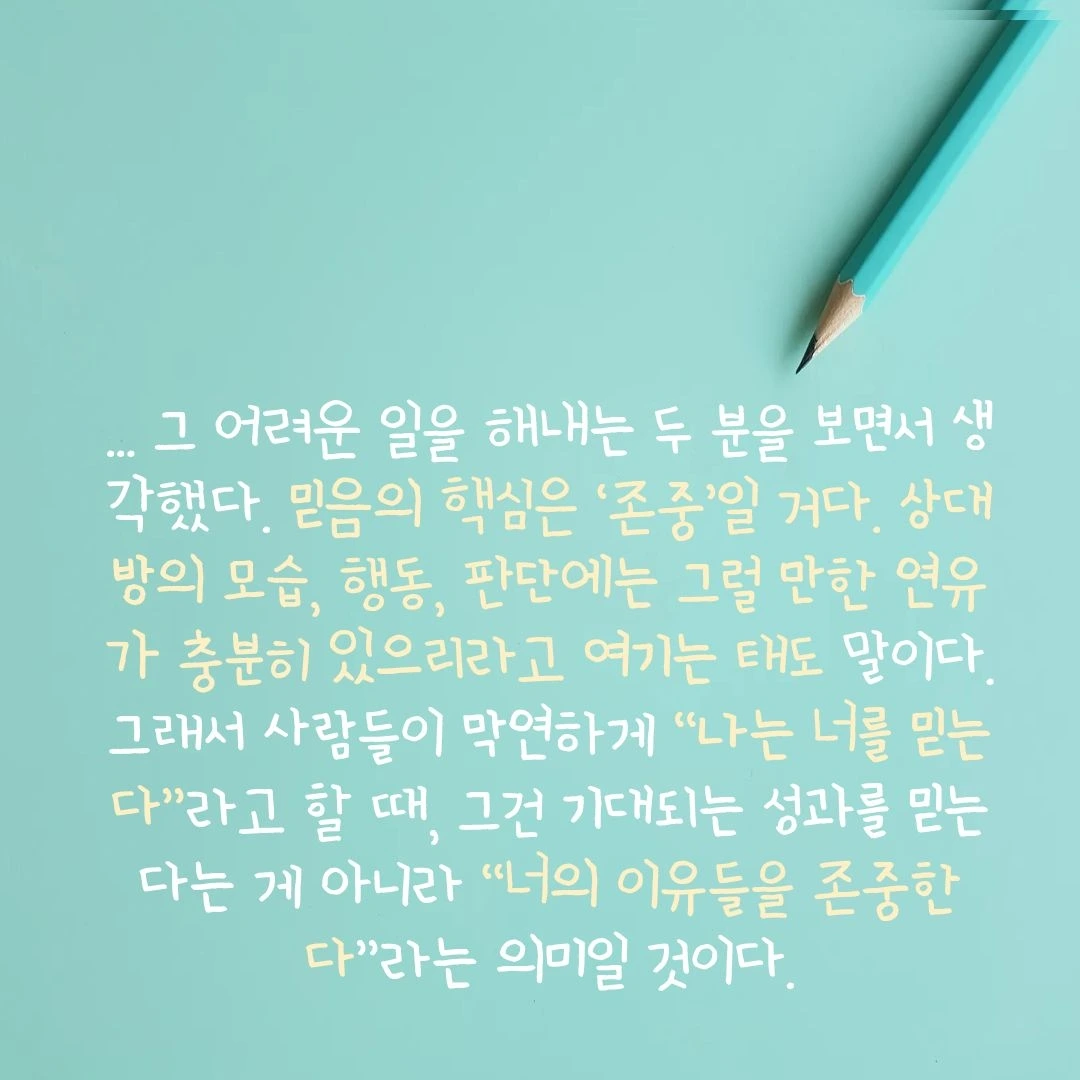 ... 그 어려운 일을 해내는 두 분을 보면서 생
각했다. 믿음의 핵심은 ‘존중’일 거다. 상대
방의 모습, 행동, 판단에는 그럴 만한 연유
가 충분히 있으리라고 여기는 태도 말이다.
그래서 사람들이 막연하게 “나는 너를 믿는
다”라고 할 때, 그건 기대되는 성과를 믿는
다는 게 아니라 “너의 이유들을 존중한
다”라는 의미일 것이다.